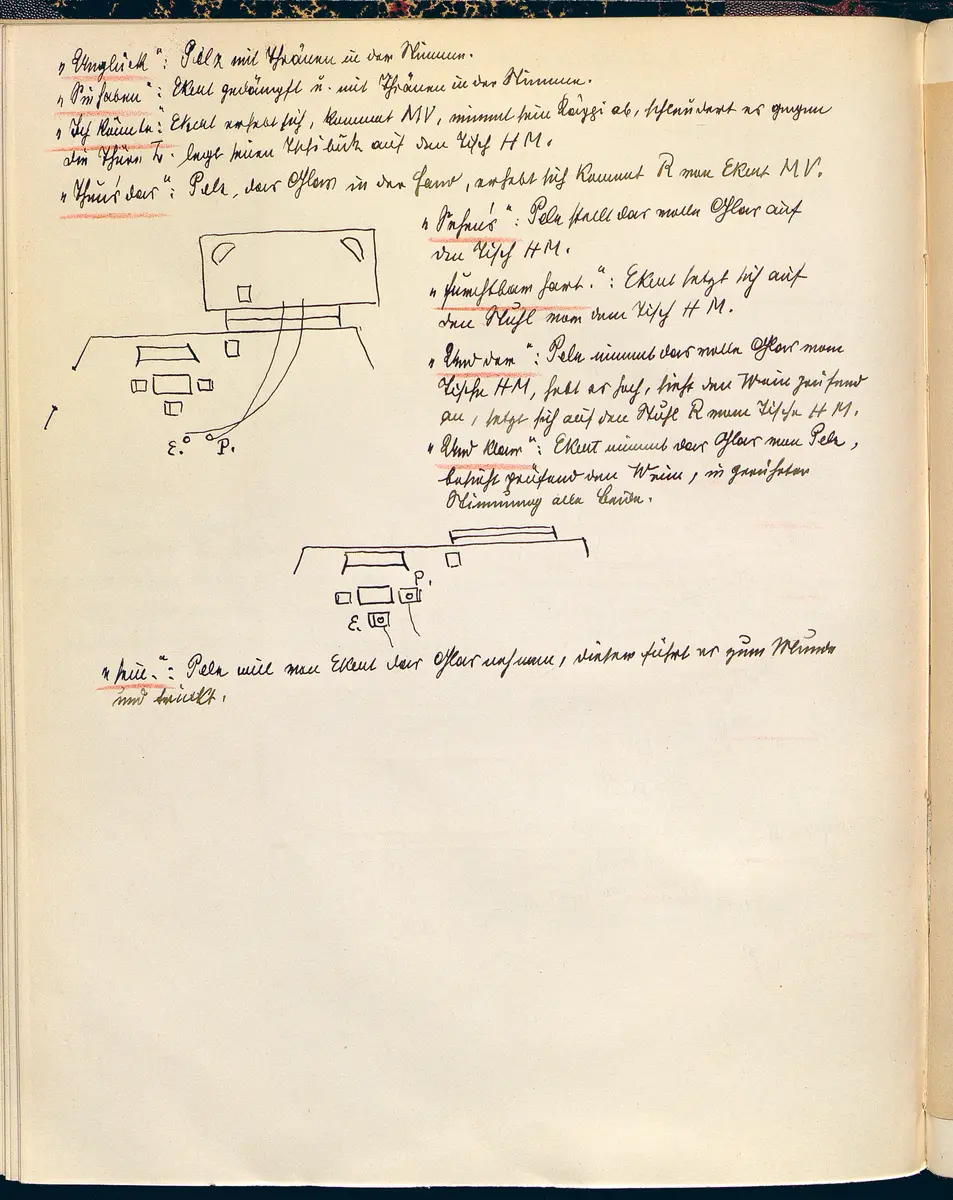 „Unglück“: Pelz mit Thränen in der Stimme.
„Sie haben“: Ekert gedämpft u. mit Thränen in der Stimme.
„Ich könnte“: Ekert erhebt sich, kommt MV, nimmt sein Käppi ab, schleudert es gegen
die Thüre L. legt seinen Tschibuk auf den Tisch HM.
„Thun's das“: Pelz, das Glas in der Hand, erhebt sich kommt R von Ekert MV.
„Sehen's“: Pelz stellt das volle Glas auf
den Tisch HM.
„furchtbar hart.“: Ekert setzt sich auf
den Stuhl vor dem Tisch HM.
„Und der“: Pelz nimmt das volle Glas vom
Tische HM, hebt es hoch, sieht den Wein prüfend
an, setzt sich auf den Stuhl R vom Tische HM.
„Und klar“: Ekert nimmt das Glas von Pelz,
besieht prüfend den Wein, in gerührter
Stimmung alle Beide.
E. P.
P.
E.
„sein.“: Pelz will von Ekert das Glas nehmen, dieser führt es zum Munde
und trinkt.